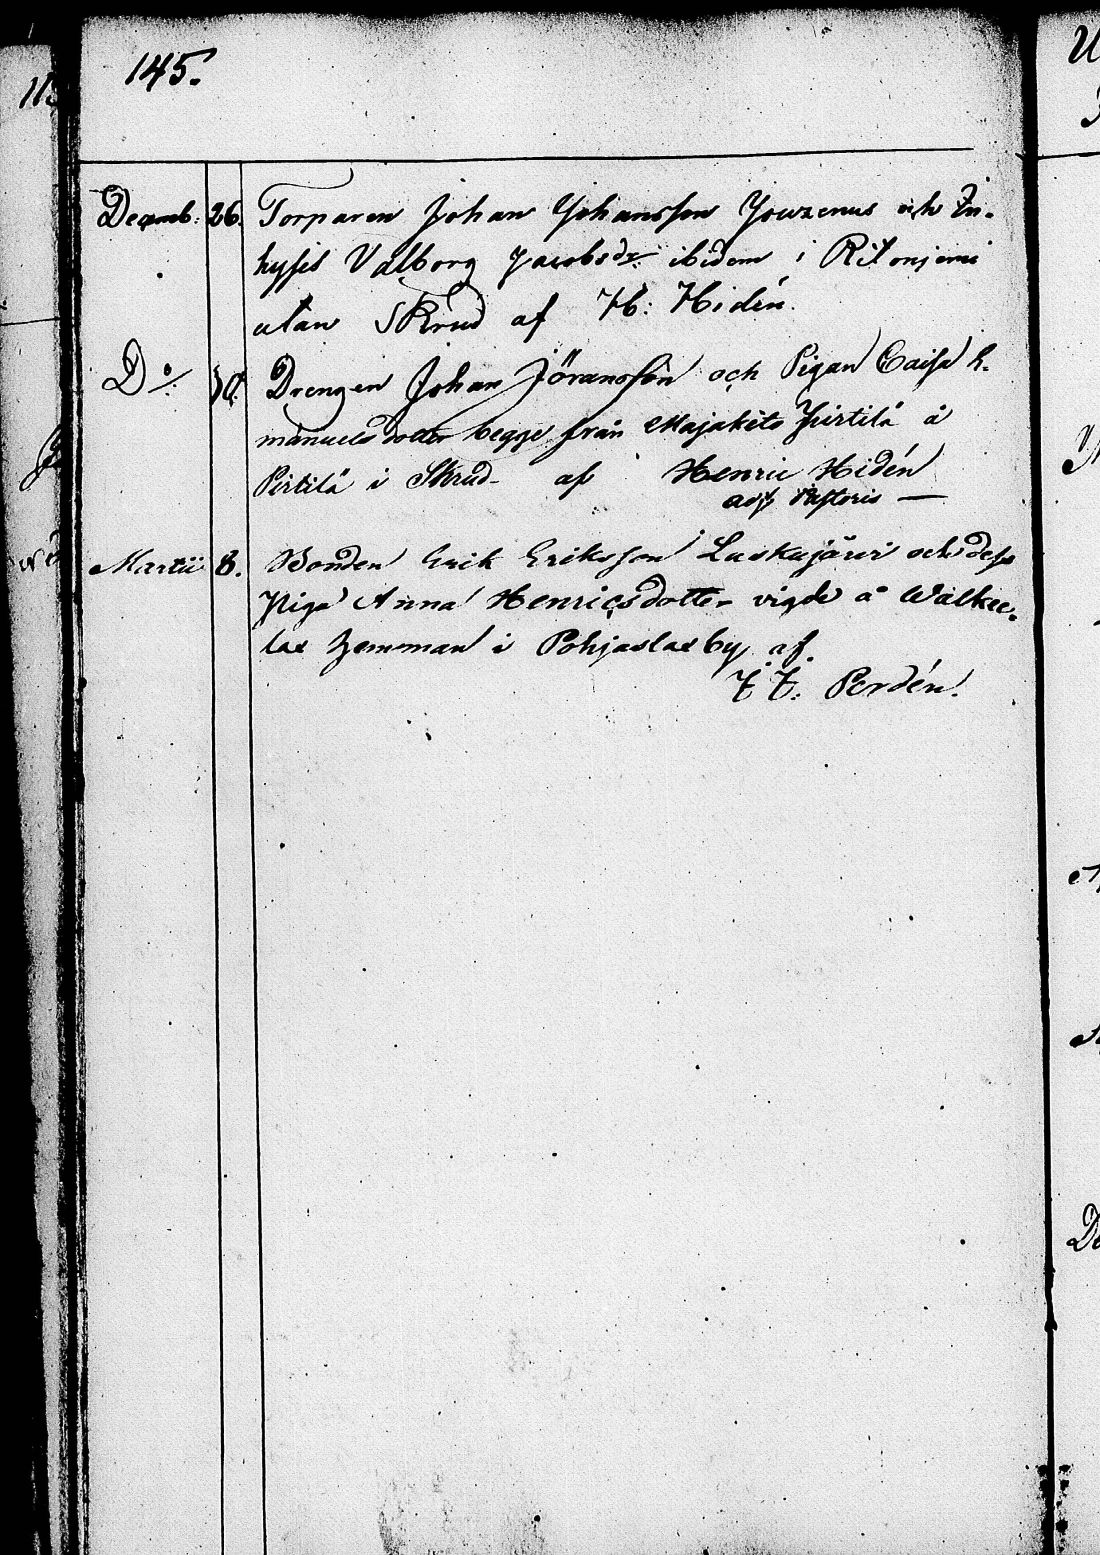 145.
Decemb: 26. Torparen Johan Johansson Jouzenus och In-
hyses Valborg Jacobsdr: ibidem i Ritoniemi
utan Skrud af H: Hidén.
Do/: 30. Drengen Johan Jöransson och Pigan Caisa E-
manuels dotter begge från Majakito Pirtilä å
Pirtilä i Skrud af Henric Hidén
adj. Pastoris —
Martii 8. Bonden Erik Eriksson Laskujärvi och dess
Piga Anna Henricsdotter vigde å Walkee-
las hemman i Pohjaslax by af
F. F. Perdén.